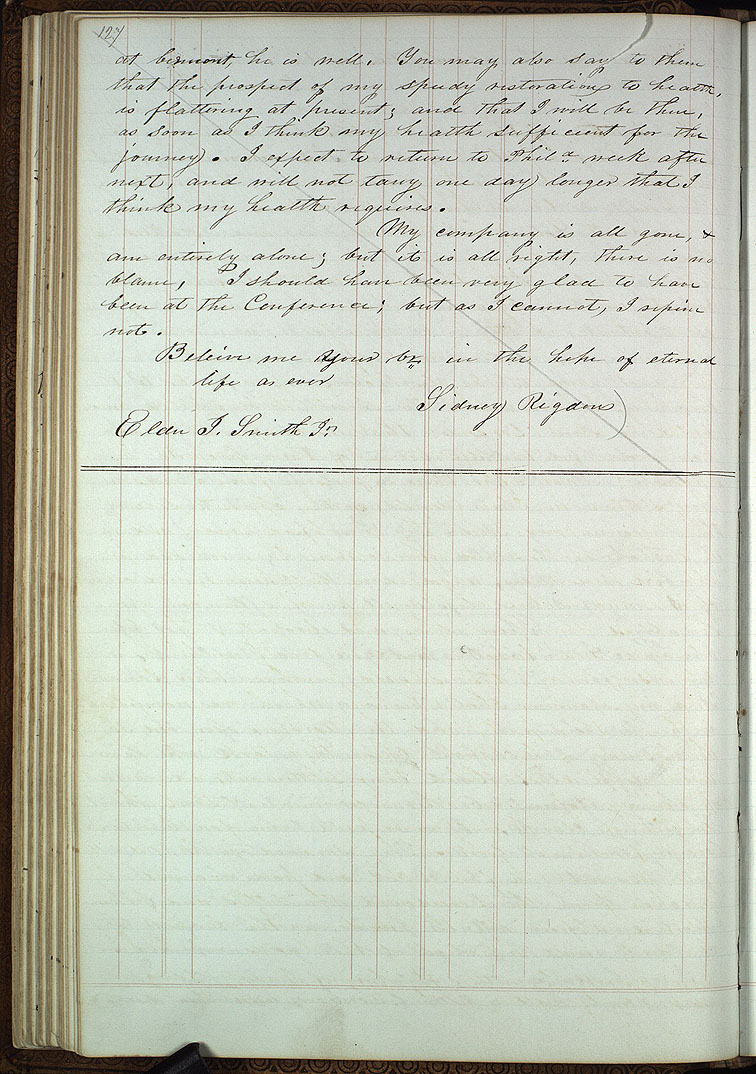 127
at bermont he is well. You may also say to them
that the prospect of my speedy restoration to health,
is flattering at present; and that I will be there,
as soon as I think my health sufficient for the
journey. I expect to return to Phila week after
next, and will not tarry one day longer that I
think my health requires.
My company is all gone, &
am entirely alone; but it is all right, there is no
blame, I should have been very glad to have
been at the Conference; but as I cannot, I repine
not.
Beleive me your br, in the hope of eternal
life as ever
Sidney Rigdon
Elder J. Smith Jr.